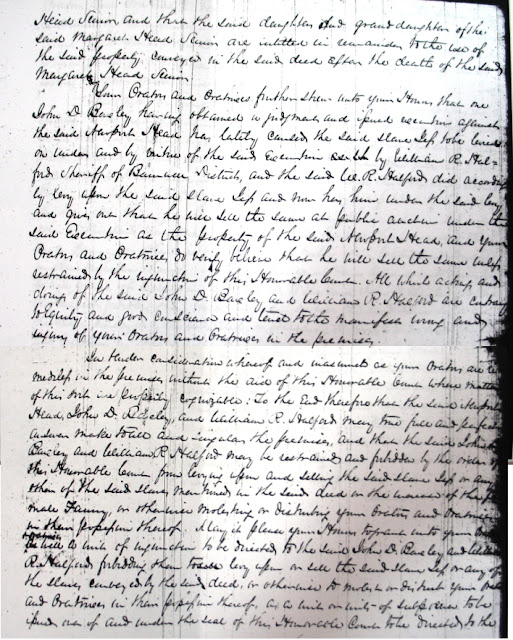 Head Senior and that the said daughters and granddaughters of the
said Margaret Head Senior are intitled in remainder to the use of
the said property conveyed in the said deed after the death of the said
Margaret Head Senior
Your Orators and Oratrixes further shew unto your Honors that one
John D Baxley having obtained a judgment and issued execution against
the said Newport Head has lately caused the said slave Jeff to be levied
on under and by virtue of the said Execution by William R. Hal-
ford Sheriff of Barnwell District, and the said W. R. Halford did according
ly levy upon the said slave Jeff and now has him under the said levy
and gives out that he will sell the same at public auction under the
said Execution as the property of the said Newport Head, and your
Orators and Oratrixes do verily believe that he will sell the same unless
restrained by the injunction of this Honorable Court. All which actings and
doings of the said John D. Baxley and William R. Halford are contrary
to Equity and good conscience and tend to the manifest wrong and
injury of your Orators and Oratrixes in the premises.
In tender consideration whereof and inasmuch as your Orators are re
mediless in the premises without the aid of this Honorable Court where matters
of this sort are properly cognizable: To the End therefore that the said Newport
Head, John D. Baxley, and William R. Halford may true full and perfect
answer make to all and singular the premises, and that the said John D
Baxley and William R. Halford may be restrained and forbidden by the order of
this Honorable Court from levying upon and selling the said slave Jeff or any
other of the said slaves mentioned in the said deed or the increase of the fe
male Fanny, or otherwise molesting or disturbing your Orators and Oratrixes
in their possession thereof. May it please your Honors to grant unto your Orators
as well a writ of injunction to be directed to the said John D. Baxley and William
R. Halford forbidding them to levy upon or sell the said slave Jeff or any of
the slaves conveyed by the said deed, or otherwise to molest or disturb your Orators
and Oratrixes in their possession thereof, as a writ or writs of subpoena to be
issued out of and under the seal of this Honorable Court to be directed to the